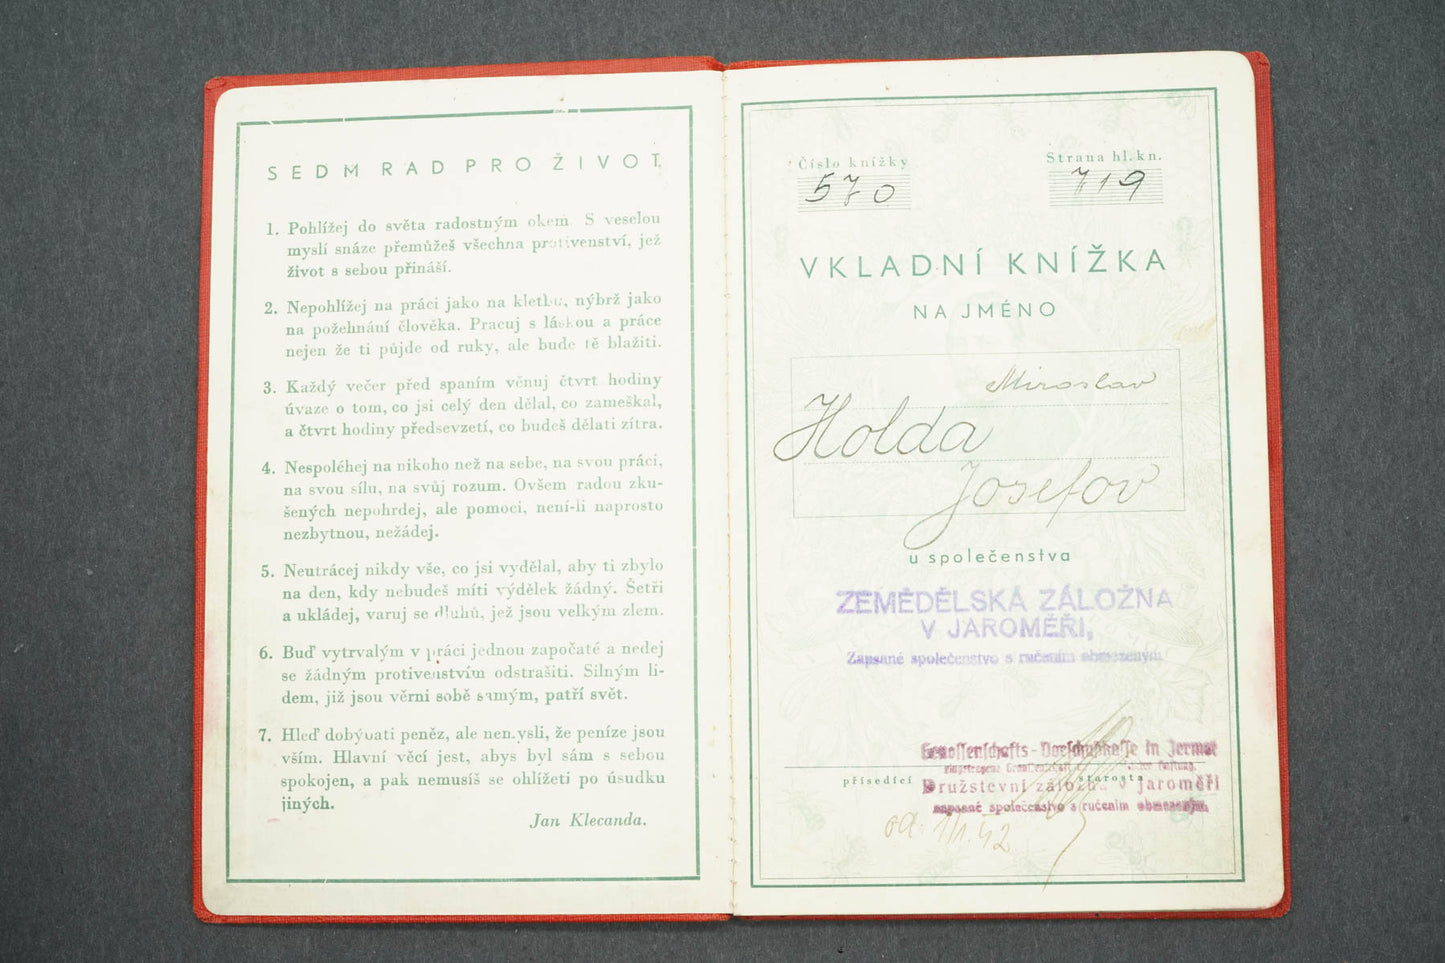 SEDM RAD PRO ŽIVOT.
1. Pohlížej do světa radostným okem. S veselou
myslí snáze přemůžeš všechna protivenství, jež
život s sebou přináší.
2. Nepohlížej na práci jako na kletbu, nýbrž jako
na požehnání člověka. Pracuj s láskou a práce
nejen že ti půjde od ruky, ale bude tě blažiti.
3. Každý večer před spaním věnuj čtvrt hodiny
úvaze o tom, co jsi celý den dělal, co zameškal,
a čtvrt hodiny předsevzetí, co budeš dělati zítra.
4. Nespoléhej na nikoho než na sebe, na svou práci,
na svou sílu, na svůj rozum. Ovšem radou zku-
šených nepohrdej, ale pomoci, není-li naprosto
nezbytnou, nežádej.
5. Neutrácej nikdy vše, co jsi vydělal, aby ti zbylo
na den, kdy nebudeš míti výdělek žádný. Šetři
a ukládej, varuj se dluhů, jež jsou velkým zlem.
6. Buď vytrvalým v práci jednou započaté a nedej
se žádným protivenstvím odstrašiti. Silným li-
dem, již jsou věrni sobě samým, patří svět.
7. Hleď dobývati peněz, ale nemysli, že peníze jsou
vším. Hlavní věcí jest, abys byl sám s sebou
spokojen, a pak nemusíš se ohlížeti po úsudku
jiných.
Jan Klecanda.
Číslo knížky
570
Strana hl. kn.
719
VKLADNÍ KNÍŽKA
NA JMÉNO
Miroslav
Holda
Josefov
u společenstva
ZEMĚDĚLSKÁ ZÁLOŽNA
V JAROMĚŘI,
Zapsané společenstvo s ručením obmezeným
Genossenschafts-Vorschußkasse in Jermer
přísedící
starosta
Družstevní záložna v Jaroměři
zapsané společenstvo s ručením obmezeným
od 1/1. 42